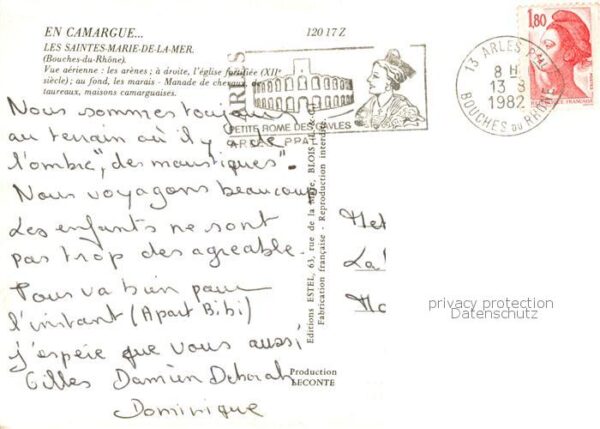 EN CAMARGUE...
120 17 Z
LES SAINTES-MARIE-DE-LA-MER.
(Bouches-du-Rhône).
Vue aérienne : les arènes ; à droite, l'église fortifiée (XIIe
siècle) ; au fond, les marais - Manade de chevaux, de
taureaux, maisons camarguaises.
ARLES
PETITE ROME DES GAULES
1,80
13 ARLES PPAL
8 H
13-8
1982
BOUCHES DU RHÔNE
Nous sommes toujours
au terrain où il y a de
l'ombre, "des moustiques"
Nous voyagons beaucoup
Les enfants ne sont
pas trop des agreable.
Tous va bien pour
l'instant (Apart Bibi)
j'espère que vous aussi
Gilles Damien Deborah
Dominique
Editions ESTEL, 63, rue de la Mare, BLOIS
Fabrication française - Reproduction interdite
Production
LECONTE
privacy protection
Datenschutz